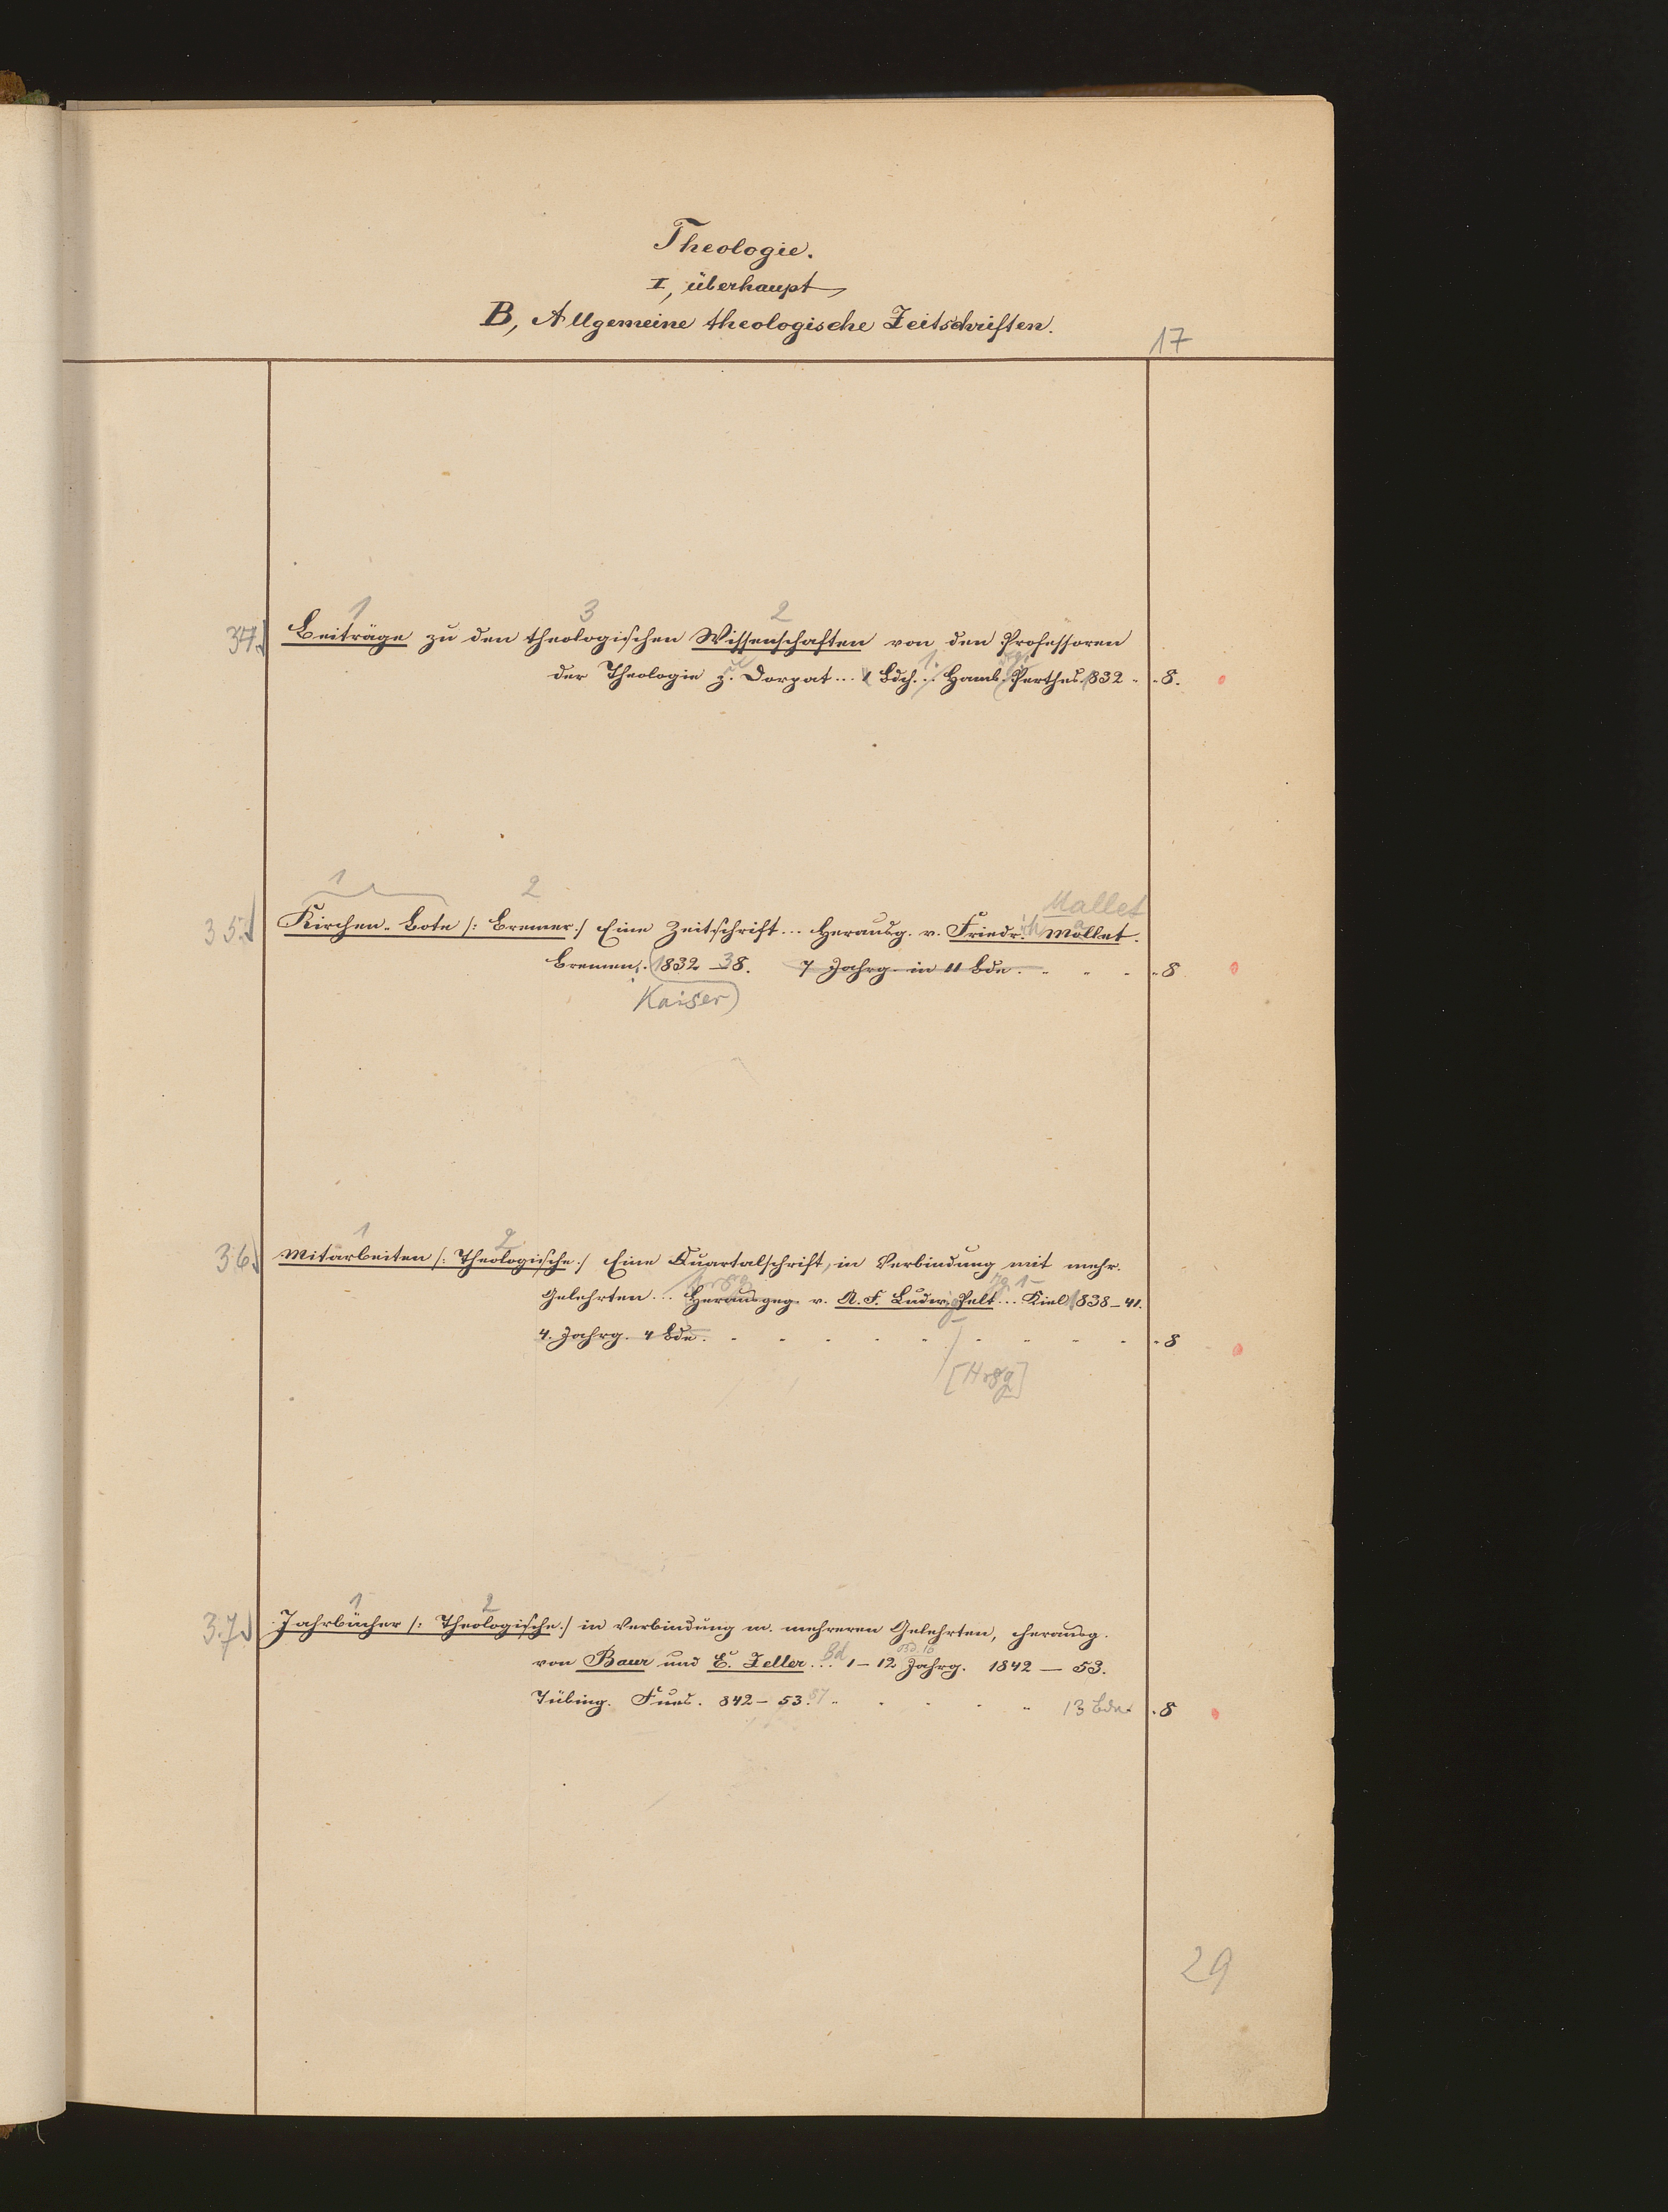 Theologie.
I, überhaupt
B, Allgemeine theologische Zeitschriften.
17
1 3 2
34. Beiträge zu den theologischen Wissenschaften von den Professoren
der Theologie z. Dorpat... 1 Bdch. .. Hamb. Perthes. 832 " " 8.
1 2 Mallet
35. Kirchen-Bote /: Bremer :/ Eine Zeitschrift... Herausg. v. Friedr. Mallet.
Bremen. (1832–38. 7 Jahrg. in 11 Bde. " " " " 8
Kaiser)
1 2
36 Mitarbeiten /: Theologische :/ Eine Quartalschrift, in Verbindung mit mehr.
Hrsg. Jg 1-
Gelehrten... Herausgeg. v. A. F. Ludw. Pelt... Kiel 1838–41.
4. Jahrg. 4 Bde. " " " " " " " " " " 8
[Hrsg]
1 2
37 Jahrbücher /: Theologische :/ in Verbindung m. mehreren Gelehrten, herausg.
von Baur und E. Zeller... Bd 1–12 Jahrg. 1842 – 53.
Tübing. Fues. 842–53. 57 " " " " " 13 Bde. " 8
29